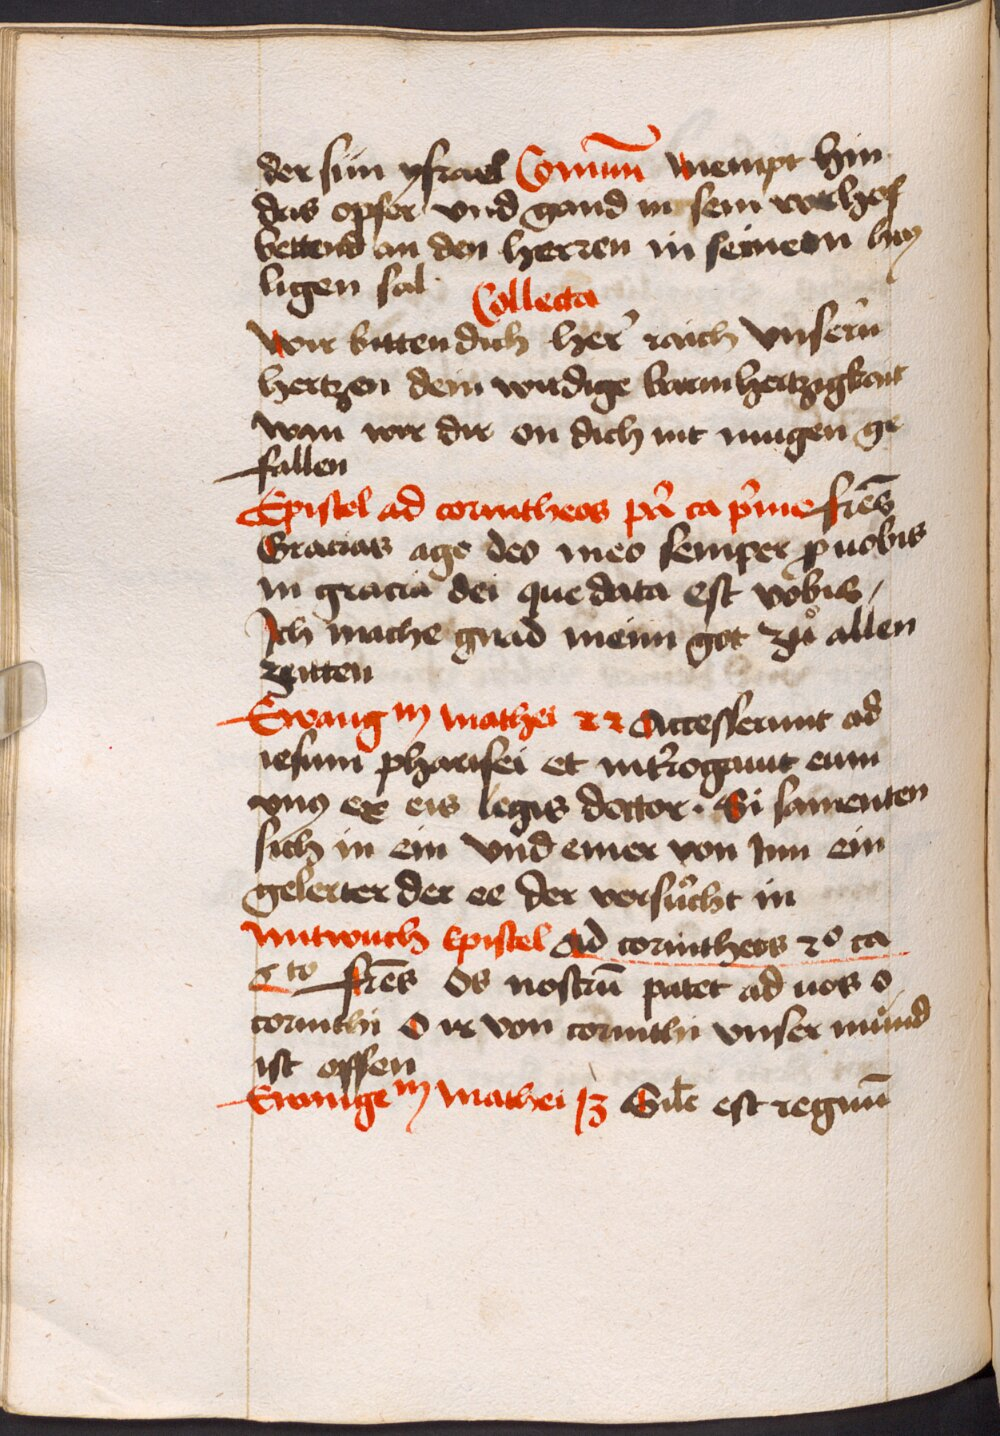 der sün ysrael Comūn Nempt hin
das opfer vnd gand in sein vorhof
bettend an den herren in seinem hey
ligen sal
Collecta
Wir bitten dich her raich vnsern
hertzen dein wirdige barmhertzigkait
wan wir dir on dich nit mugen ge
fallen
Epistel ad corintheos pri ca prīme frēs
Gracias ago deo meo semper p uobis
in gracia dei que data est vobis /
Ich mache gnad meim got zů allen
zeitten
Ewang m Mathei 22 Accesserunt ad
iesum pharisei et int'rogauit eum
vnus ex eis legis doctor . Si samenten
sich in ein vnd einer von Inn ein
gelerter der ee der versůcht in
Mitwuch Epistel Ad corintheos 2º ca
6to frēs Os nostrū patet ad uos o
corinthi O ir von corinthi vnser můnd
ist offen
Ewange m Mathei 13 Sile est regnū